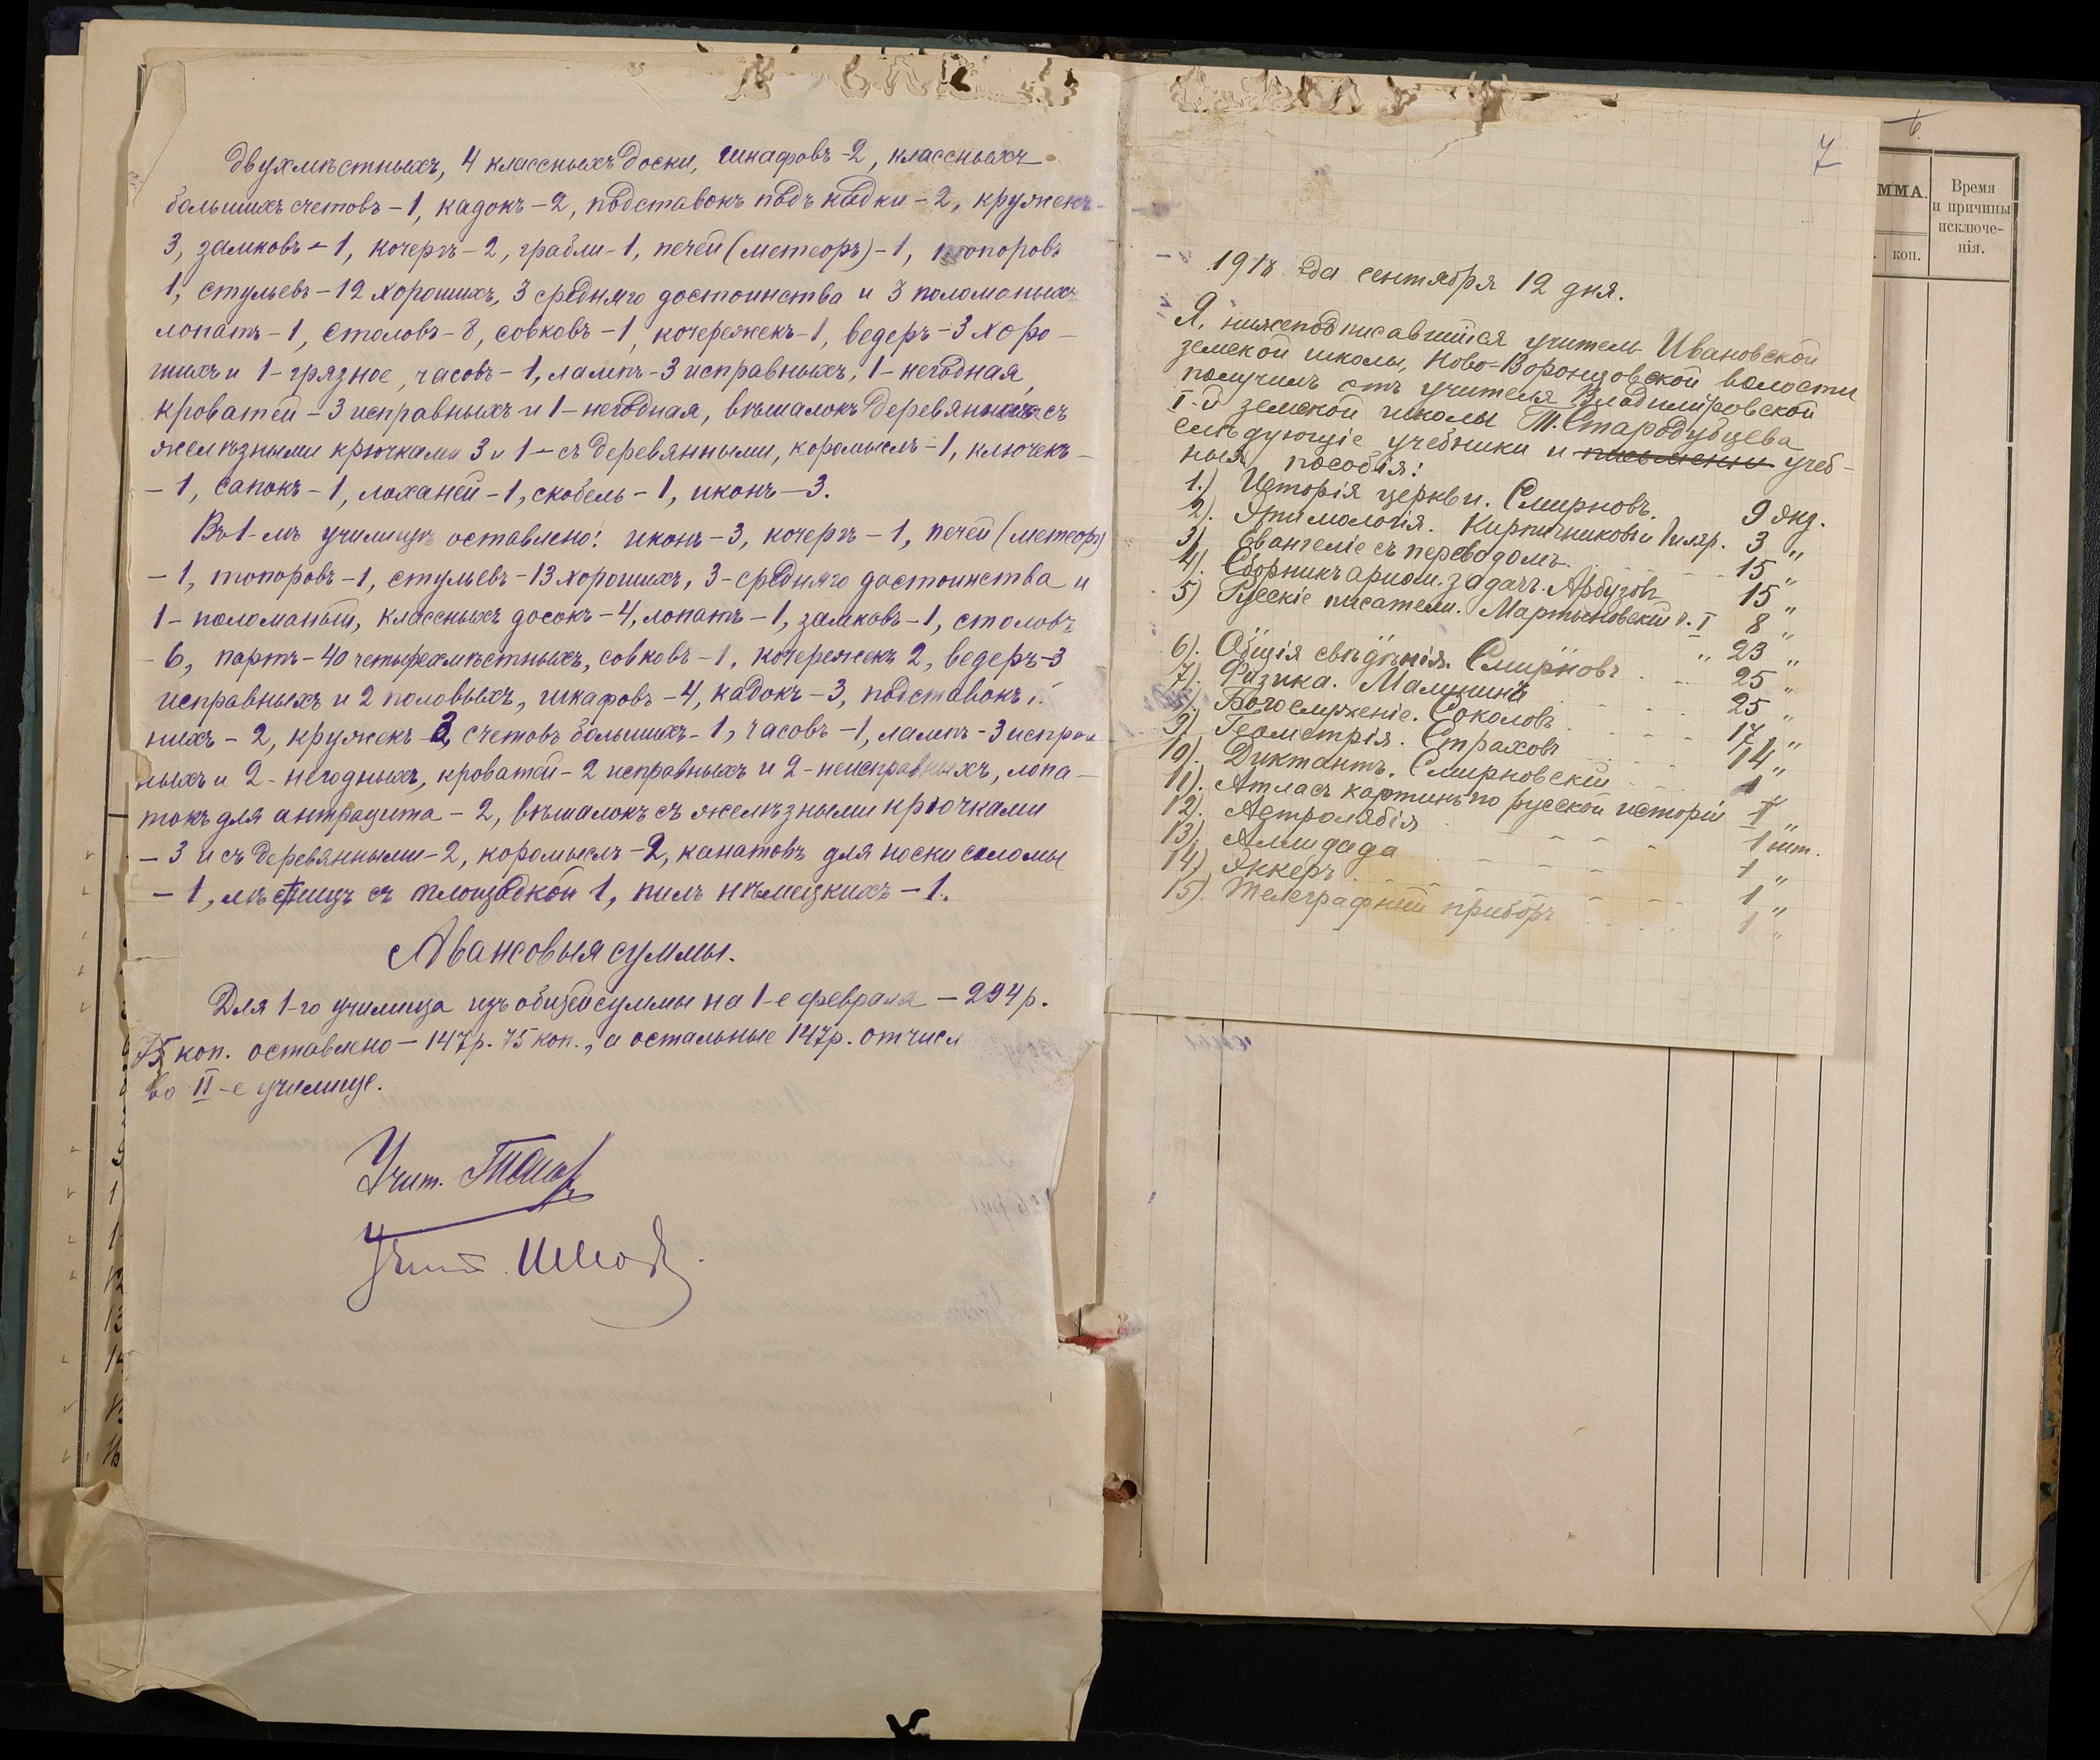 двухмѣстныхъ, 4 классныхъ доски, шкафовъ - 2, классныхъ
большихъ счетовъ - 1, кадокъ - 2, подставокъ подъ кадки - 2, кружекъ -
3, замковъ - 1, кочергъ - 2, грабли - 1, печей (метеоръ) - 1, топоровъ
1, стульевъ - 12 хорошихъ, 3 средняго достоинства и 3 поломаныхъ
лопатъ - 1, столовъ - 8, совковъ - 1, кочережекъ - 1, ведеръ - 3 хоро-
шихъ и 1 - грязное, часовъ - 1, лампъ - 3 исправныхъ, 1 - негодная,
кроватей - 3 исправныхъ и 1 - негодная, вѣшалокъ деревянныхъ съ
желѣзными крючками 3 и 1 - съ деревянными, коромыслъ - 1, ключекъ -
- 1, сапокъ - 1, лоханей - 1, скобель - 1, иконъ - 3.
Въ 1-мъ училищѣ оставлено: иконъ - 3, кочергъ - 1, печей (метеоръ)
- 1, топоровъ - 1, стульевъ - 13 хорошихъ, 3 - средняго достоинства и
1 - поломаный, классныхъ досокъ - 4, лопатъ - 1, замковъ - 1, столовъ
- 6, партъ - 40 четырехмѣстныхъ, совковъ - 1, кочережекъ 2, ведеръ - 3
исправныхъ и 2 половыхъ, шкафовъ - 4, кадокъ - 3, подставокъ
нихъ - 2, кружекъ 3, счетовъ большихъ - 1, часовъ - 1, лампъ - 3 исправ
ныхъ и 2 - негодныхъ, кроватей - 2 исправныхъ и 2 - неисправныхъ, лопа-
токъ для антрацита - 2, вѣшалокъ съ желѣзными крючками
- 3 и съ деревянными - 2, коромыслъ - 2, канатовъ для носки соломы
- 1, лѣстницъ съ площадкой 1, пилъ нѣмецкихъ - 1.
Авансовыя суммы.
Для 1-го училища изъ общей суммы на 1-е февраля - 294 р.
75 коп. оставлено - 147 р. 75 коп., а остальные 147 р. отчисл
во II-е училище.
Учит.
Учит.
7
6.
ММА.
Время
и причины
исключе-
нія.
коп.
1918 да сентября 12 дня.
Я, нижеподписавшійся учитель Ивановской
земской школы, Ново-Воронцовской волости
получилъ отъ учителя Владиміровской
I-й земской школы Т. Стародубцева
слѣдующіе учебники и письменн учеб-
ныя пособія:
1). Исторія церкви. Смирновъ. 9 экз.
2). Этимологія. Кирпичниковъ и Гиляр. 3 "
3). Евангеліе съ переводомъ. 15 "
4). Сборникъ ариѳм. задачъ. Арбузовъ 15 "
5) Русскіе писатели. Мартыновскій ч. I 8 "
6). Общія свѣдѣнія. Смирновъ " 23 "
7). Физика. Малининъ 25 "
8). Богослуженіе. Соколовъ 25 "
9). Геометрія. Страховъ 17 "
10). Диктантъ. Смирновскій 14 "
11). Атласъ картинъ по русской исторіи 1 "
12). Астролябія 1 шт.
13). Алидада 1 "
14) Эккеръ 1 "
15). Телеграфный приборъ 1 "